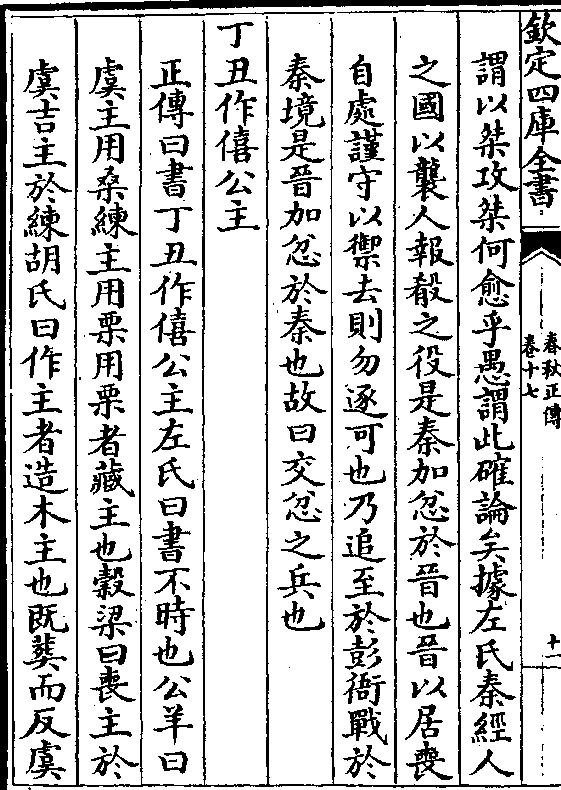 欽定四庫全書
春秋正傳
卷十七
十一
謂以桀攻桀何愈乎愚謂此確論矣據左氏秦經人
之國以襲人報殽之役是秦加忿於晉也晉以居喪
自處謹守以禦去則勿逐可也乃追至於彭衙戰於
秦境是晉加忿於秦也故曰交忿之兵也
丁丑作僖公主
正傳曰書丁丑作僖公主左氏曰書不時也公羊曰
虞主用桑練主用栗用栗者藏主也穀梁曰喪主於
虞吉主於練胡氏曰作主者造木主也既葬而反虞